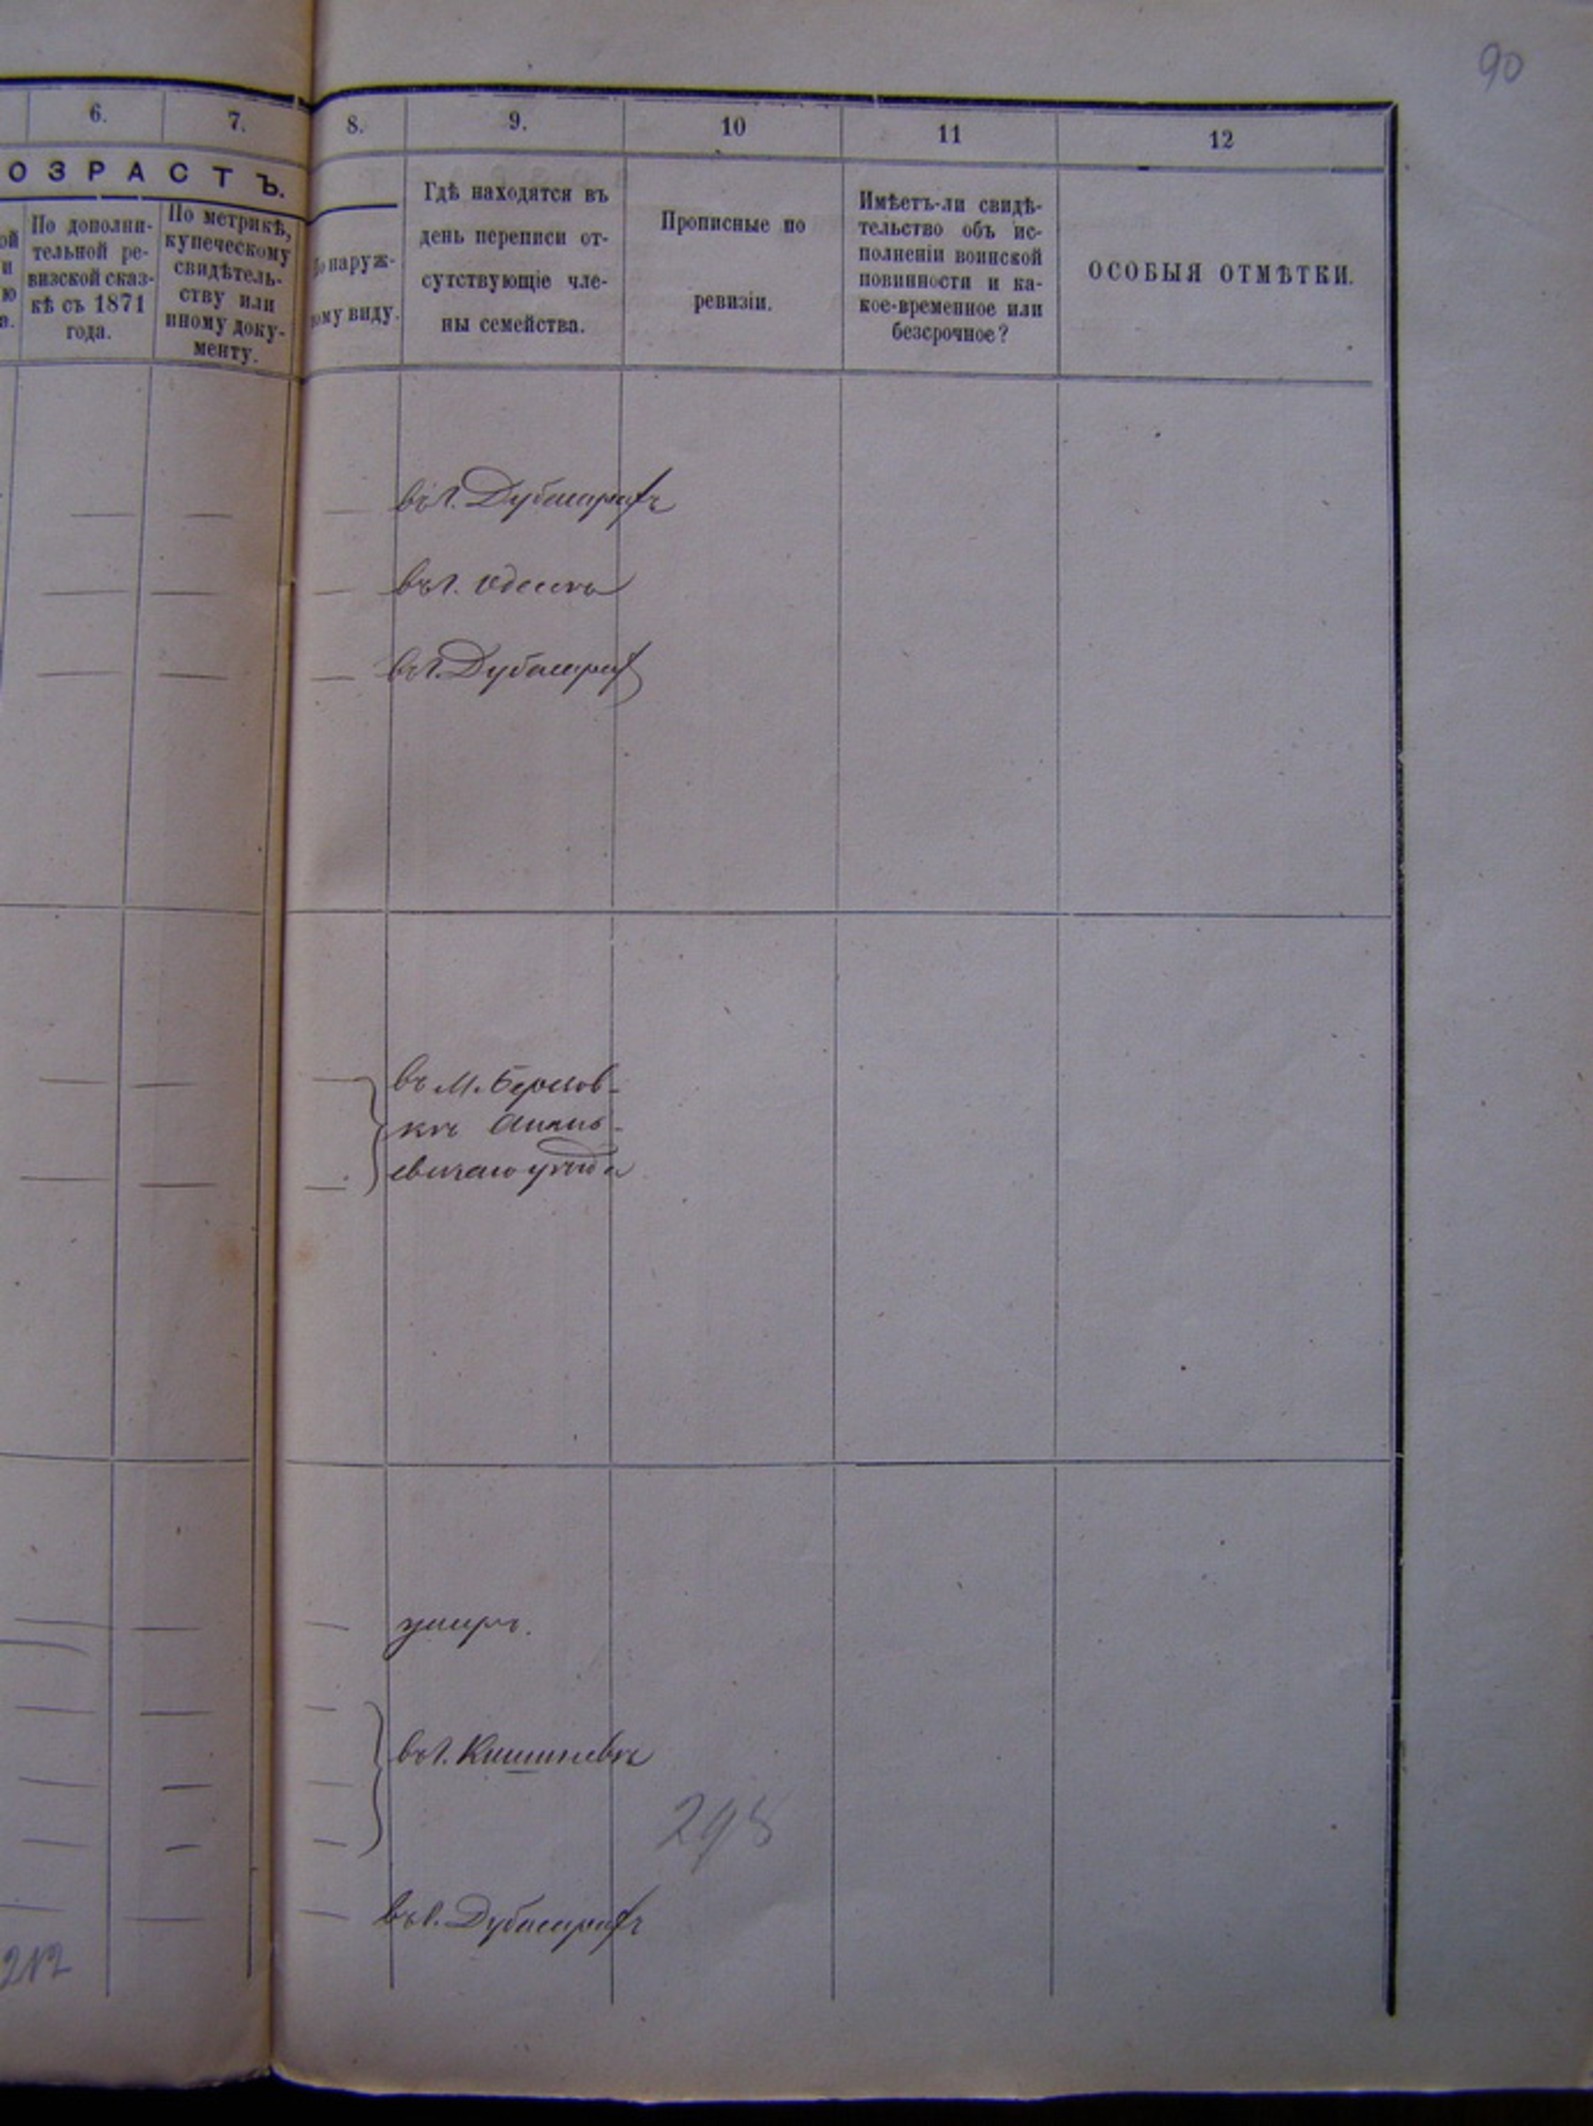 90
6.
7.
8.
9.
10
11
12
ОЗРАСТЪ.
По дополни-
тельной ре-
визской сказ-
кѣ съ 1871
года.
По метрикѣ,
купеческому
свидѣтель-
ству или
иному доку-
менту.
По наруж-
ному виду.
Гдѣ находятся въ
день переписи от-
сутствующіе чле-
ны семейства.
Прописные по
ревизіи.
Имѣетъ-ли свидѣ-
тельство объ ис-
полненіи воинской
повинности и ка-
кое-временное или
безсрочное?
ОСОБЫЯ ОТМѢТКИ.
въ г. Дубасарахъ
въ г. Одессѣ
въ г. Дубасарах
въ м. Березов-
кѣ Анань-
евскаго уѣзда
умеръ.
въ г. Кишиневѣ
298
въ г. Дубасарахъ
212